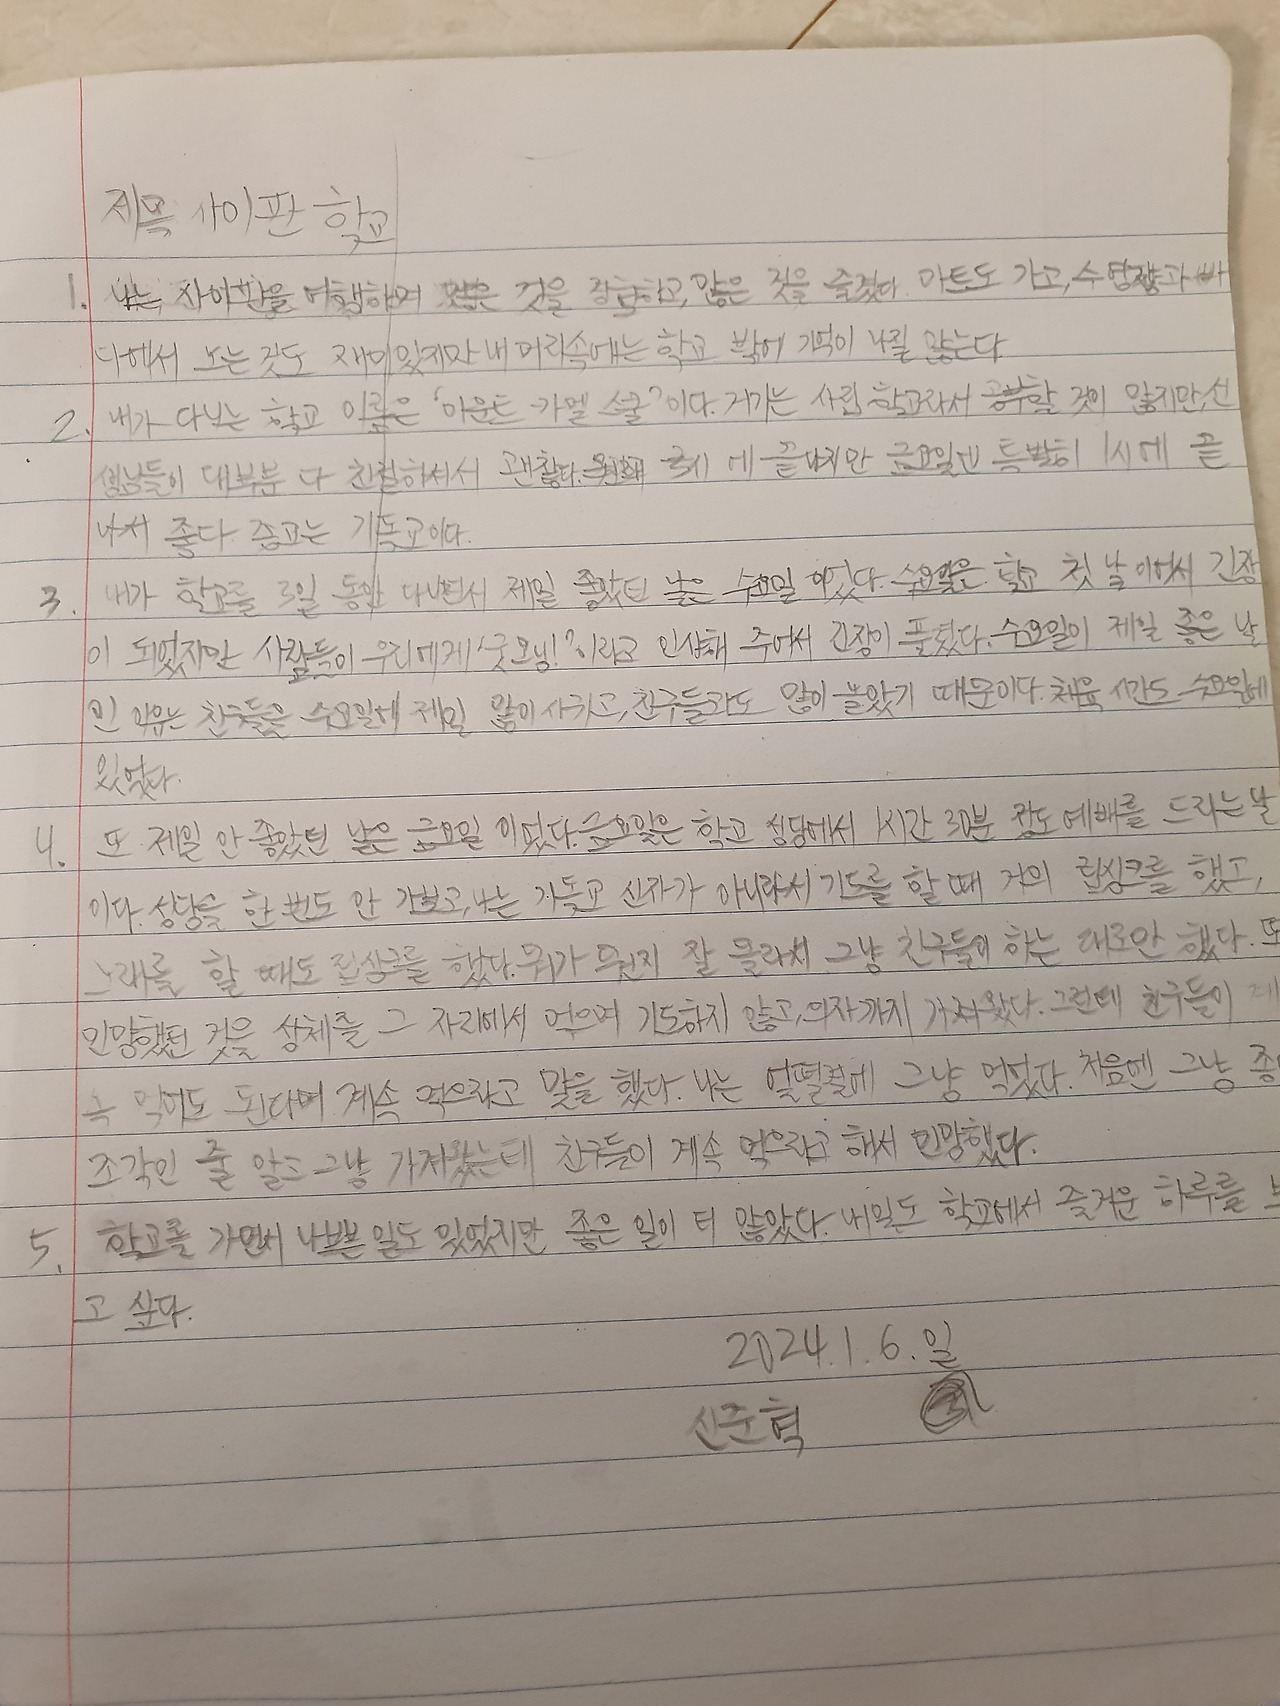 제목 사이판 학교
1. 나는 사이판을 여행하며 많은 것을 경험하고, 많은 것을 즐겼다. 마트도 가고, 수영장과 바
다에서 노는 것도 재미있지만 내 머리속에는 학교 밖에 기억이 나질 않는다
2. 내가 다니는 학교 이름은 '마운트 카멜 스쿨'이다. 거기는 사립 학교라서 공부할 것이 많지만, 선
생님들이 대부분 다 친절하셔서 괜찮다. 3시에 끝나지만 금요일엔 특별히 1시에 끝
나서 좋다. 종교는 기독교이다.
3. 내가 학교를 3일 동안 다니면서 제일 좋았던 날은 수요일 이었다. 수요일은 학교 첫 날이어서 긴장
이 되었지만 사람들이 우리에게 '굿모닝!'이라고 인사해 주어서 긴장이 풀렸다. 수요일이 제일 좋은 날
인 이유는 친구들을 수요일에 제일 많이 사귀고, 친구들과도 많이 놀았기 때문이다. 체육 시간도 수요일에
있었다.
4. 또 제일 안 좋았던 날은 금요일 이었다. 금요일은 학교 성당에서 1시간 30분 정도 예배를 드리는 날
이다. 성당을 한 번도 안 가보고, 나는 기독교 신자가 아니라서 기도를 할 때 거의 립싱크를 했고,
노래를 할 때도 립싱크를 했다. 뭐가 뭔지 잘 몰라서 그냥 친구들이 하는 대로만 했다. 또
민망했던 것은 성체를 그 자리에서 먹으며 기도하지 않고, 의자까지 가져왔다. 그런데 친구들이 계
속 먹어도 된다며 계속 먹으라고 말을 했다. 나는 얼떨결에 그냥 먹었다. 처음엔 그냥 종
조각인 줄 알고 그냥 가져왔는데 친구들이 계속 먹으라고 해서 민망했다.
5. 학교를 가면서 나쁜 일도 있었지만 좋은 일이 더 많았다. 내일도 학교에서 즐거운 하루를 보
고 싶다.
2024.1.6.일
신준혁